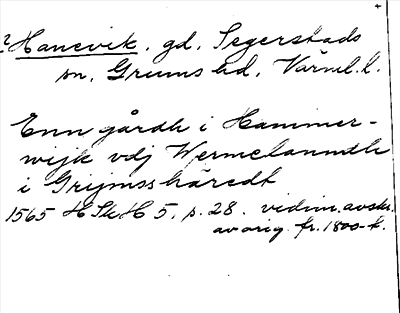 ? Hanevik, gd, Segerstads
sn, Grums hd, Värml. l.
Enn gårdh i Hammer-
wijk vdj Wermelanndh
i Grijmsshäredt
1565 HSkH 5, s. 28. vidim. avskr.
av orig. fr. 1800-t.